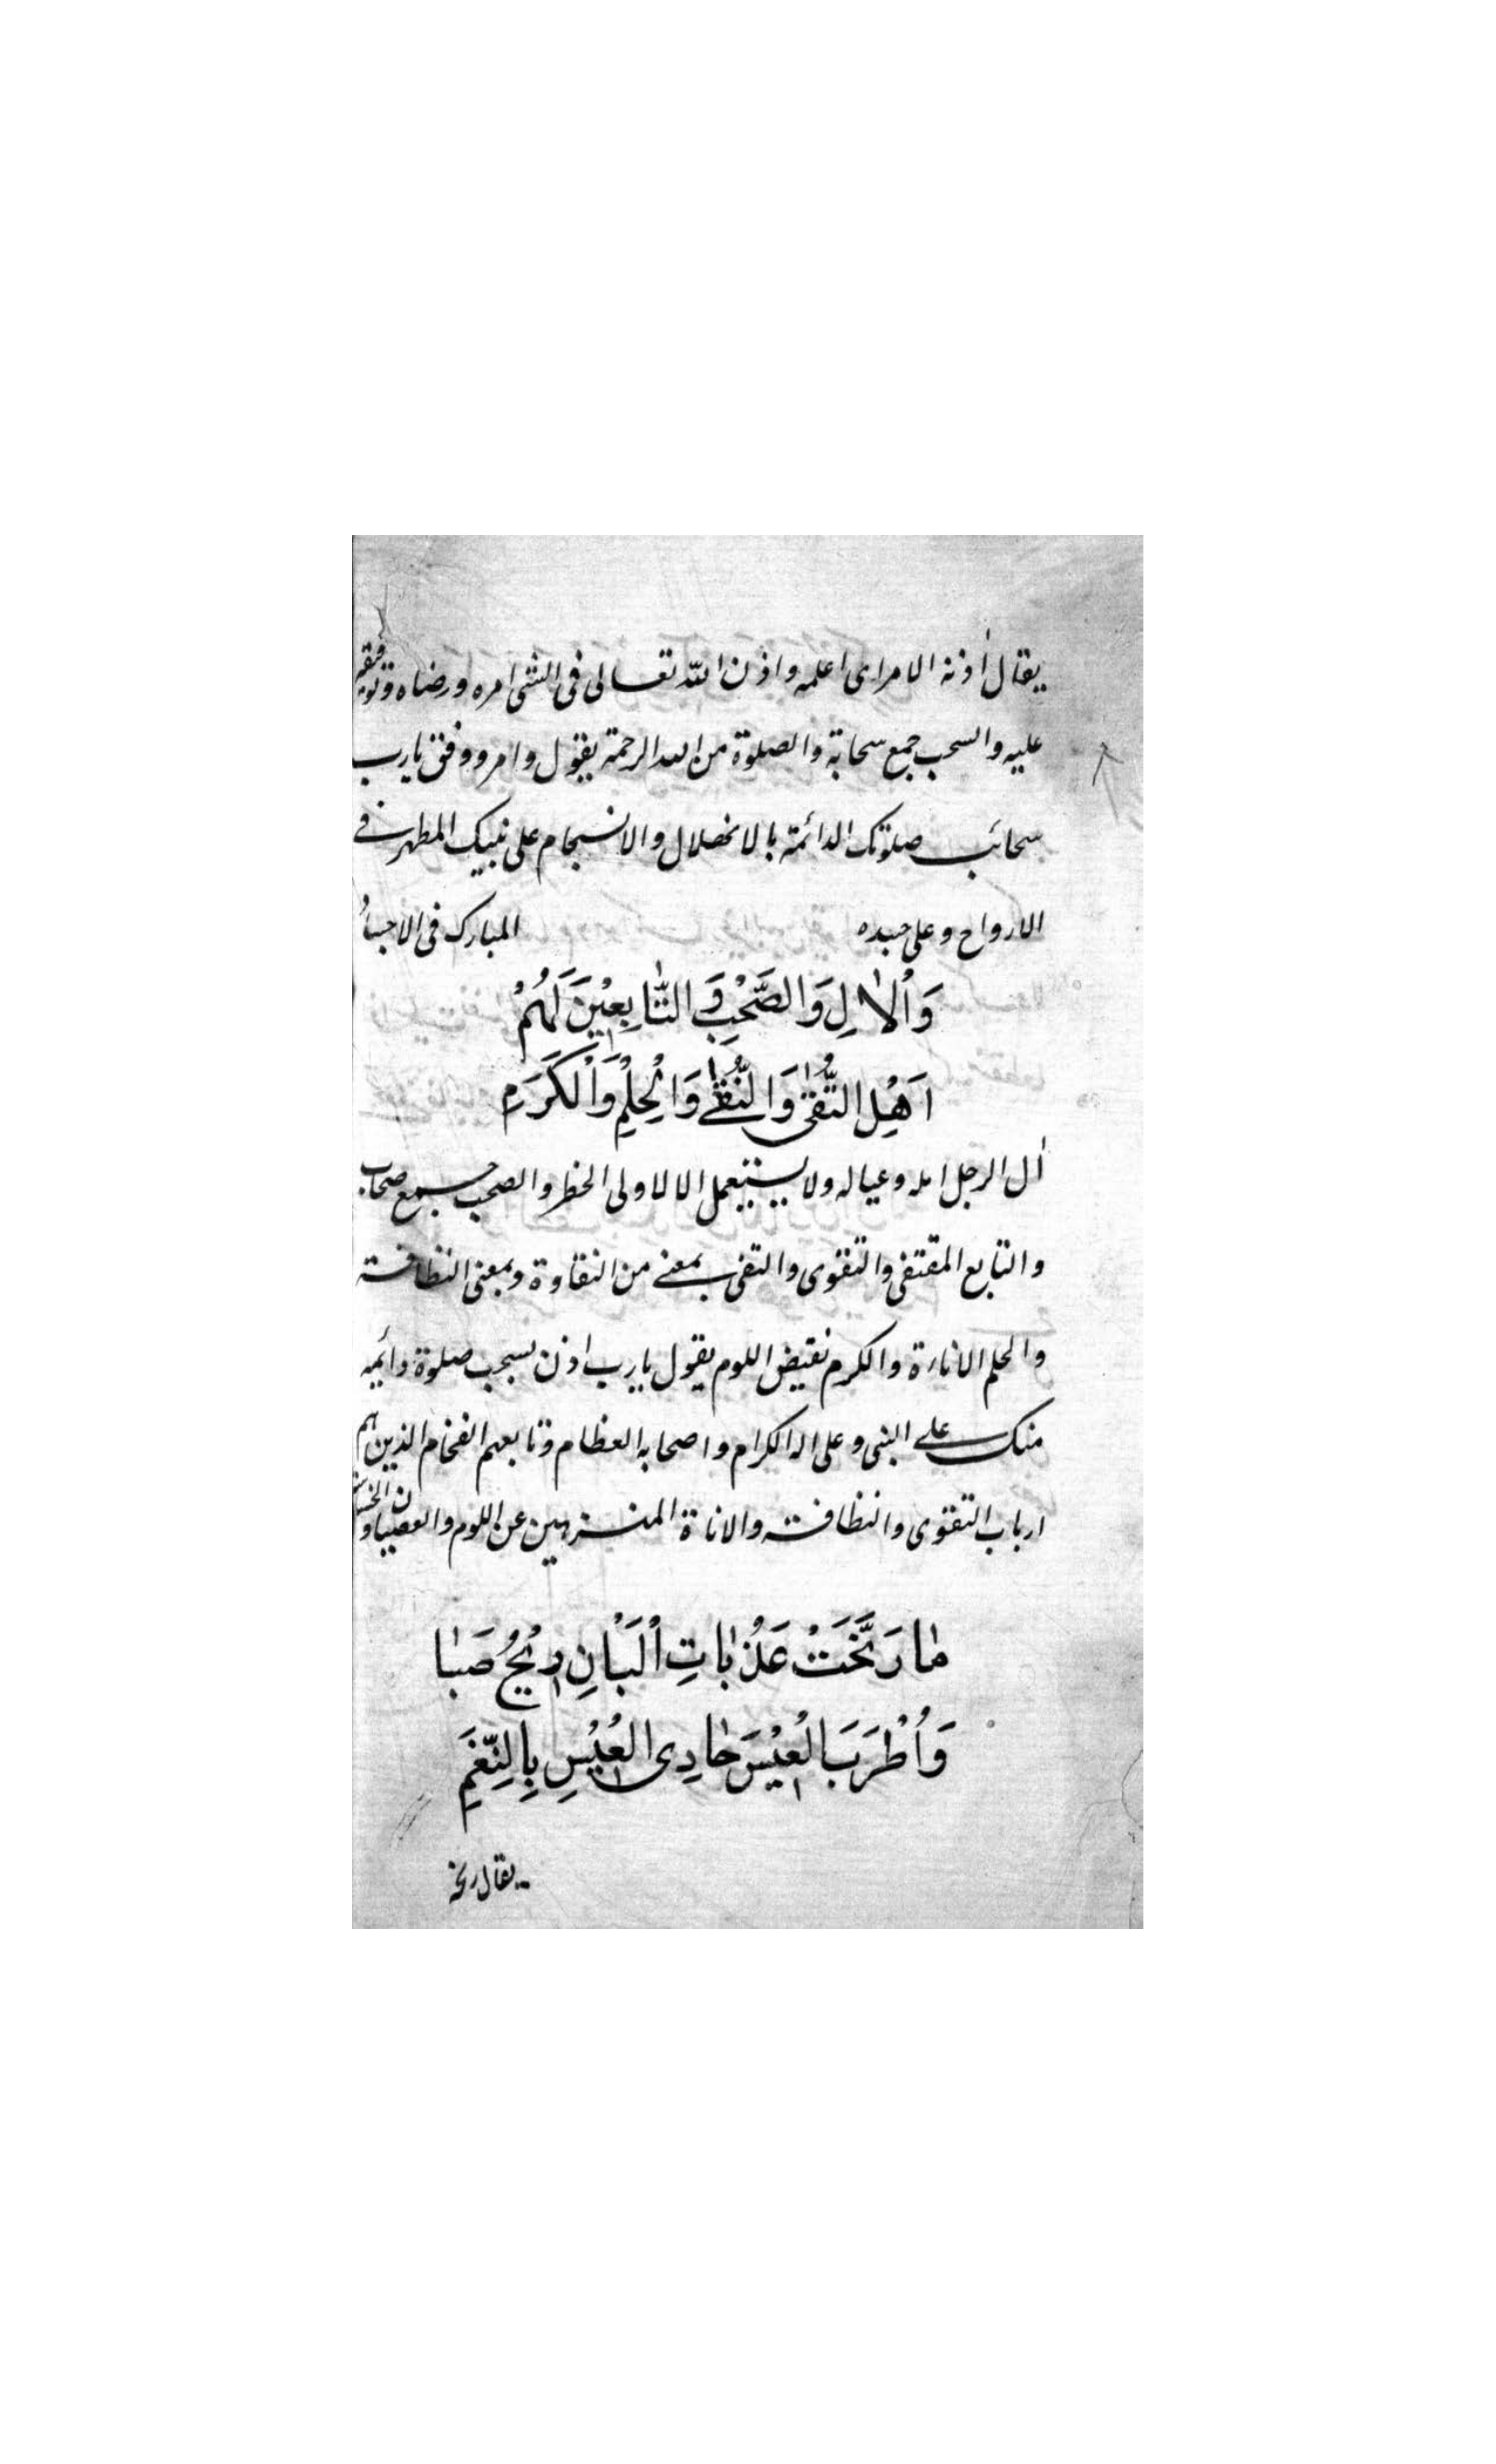 يقال أذنه الامر اى اعلمه واذن الله تعالى فى الشى امره ورضاه وتوفيقه
عليه والسحب جمع سحابة والصلوة من الله الرحمة يقول وامر ووفق يارب
سحائب صلوتك الدائمة بالانهلال والانسجام على نبيك المطهر فے
الارواح وعلى جسده المبارك فى الاجساد
وَاْلاٰلِ وَالصَّحْبِ وَ التّٰابِعِيْنَ لَهُمْ
اَهْلِ التُّقىٰ وَ النُّقےٰ وَ الْحِلْمِ وَالْكَرَمِ
اٰل الرجل اهله وعياله ولا يستعمل الا لاولى الخطر والصحب جمع صحاب
والتابع المقتفى والتقوى والتقى بمعنے من النقاوة وبمعنى النظافة
والحلم الاناءة والكرم نقيض اللوم يقول يارب اذن لسحب صلوة دائمه
منك علے النبى وعلى اله الكرام واصحابه العظام وتابعهم الفخام الذين هم
ارباب التقوى والنظافة والاناة المنزهين عن اللوم والعصيان و
مٰا رَنَّحَتْ عَذَبٰاتِ اْلبَانِ رِيْحُ صَبٰا
وَاُطْرَبَ الْعِيْسَ حٰادِى الْعِيْسِ بِالنَّغَمِ
يقال رنحه